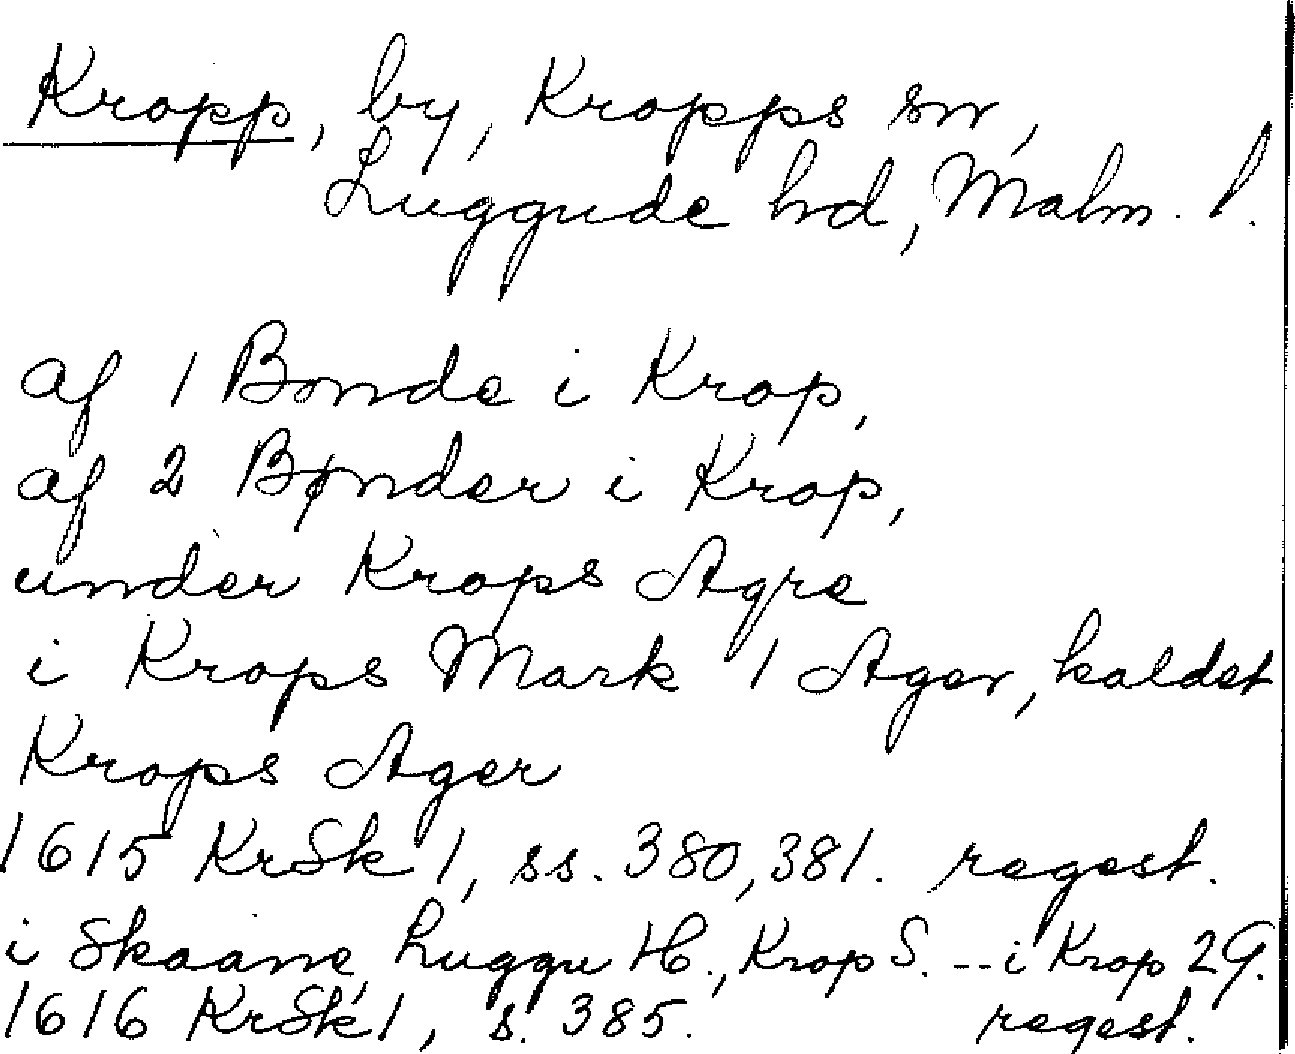 Kropp, by, Kropps sn,
Luggude hd, Malm. l.
af 1 Bonde i Krop,
af 2 Bønder i Krop,
under Krops Agre
i Krops Mark 1 Ager, kaldet
Krops Ager
1615 KrSk 1, ss. 380, 381. regest.
i Skaane, Luggu H., Krop S. -- i Krop 2 G.
1616 KrSk 1, s. 385. regest.